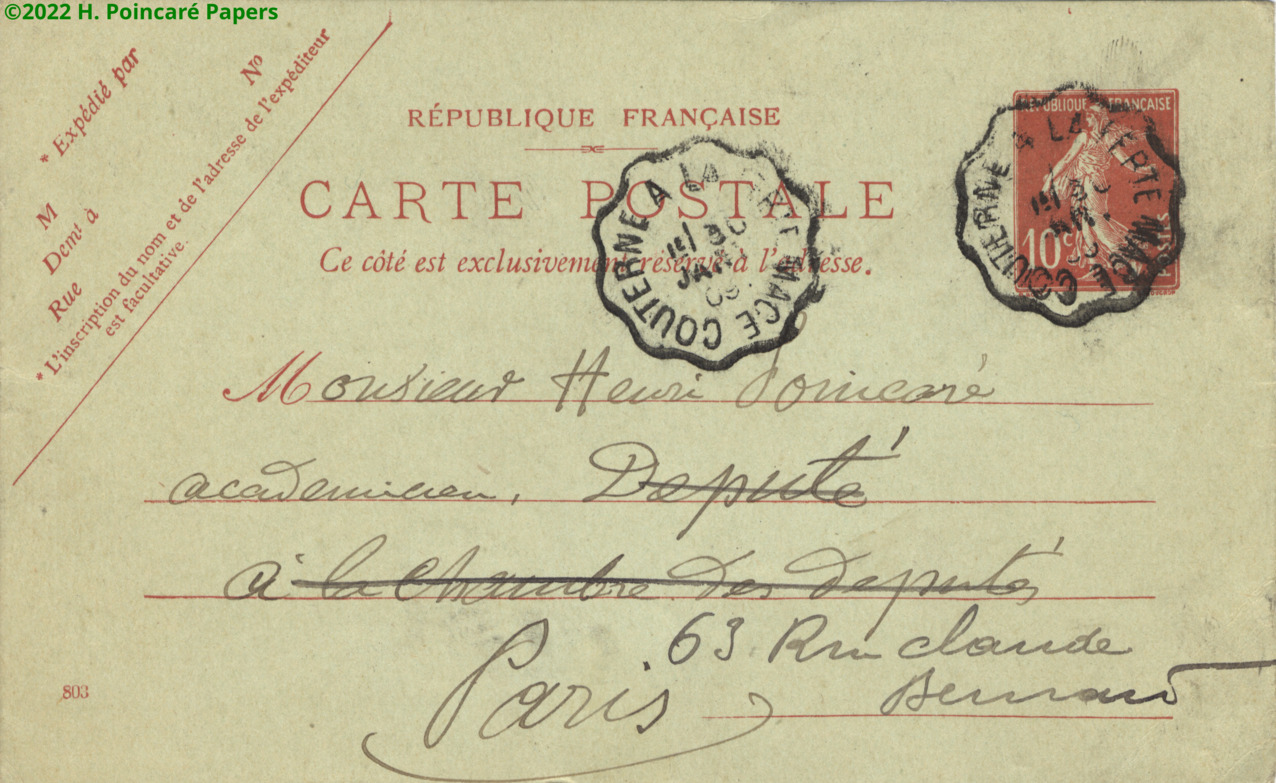 ©2022 H. Poincaré Papers
* Expédié par
Nº
M
Demt à
Rue
* L'inscription du nom et de l'adresse de l'expéditeur
est facultative.
RÉPUBLIQUE FRANÇAISE
CARTE POSTALE
Ce côté est exclusivement réservé à l'adresse.
RÉPUBLIQUE FRANÇAISE
10c POSTES
COUTERNE A LA FERTE MACE
COUTERNE A LA FERTE MACE
30
JANV
09
Monsieur Henri Poincaré
academicien, Deputé
à la chambre des deputés
63 Rue claude
Bernard
Paris
803